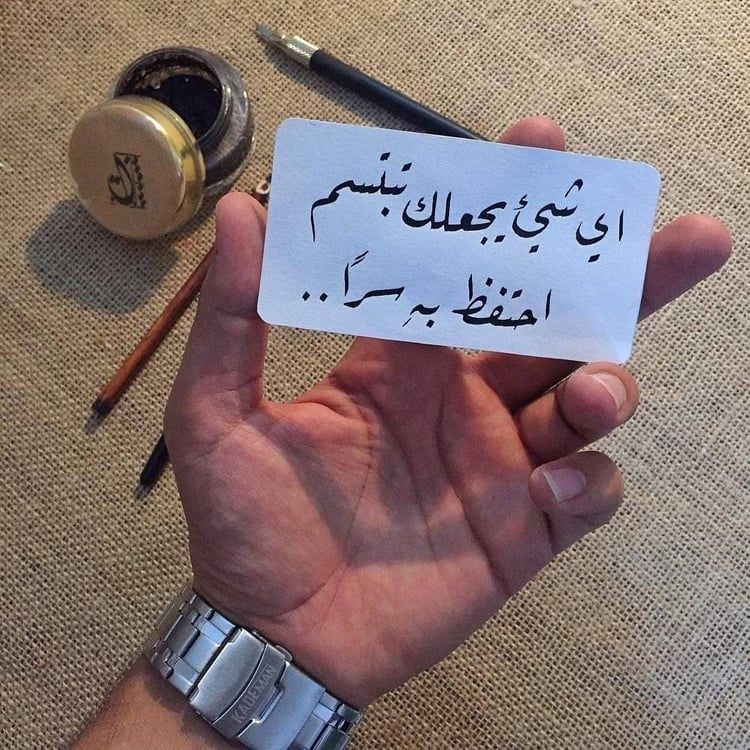 اي شيئ يجعلك تبتسم
احتفظ بهِ سراً ..
KADEMAN